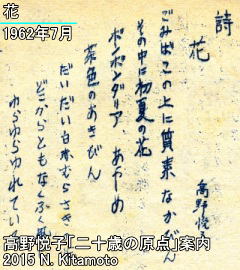 花
1962年7月
詩
花
高野悦子
ごみばこの上に質素なかびん
その中に初夏の花
ポンポンダリア、あやめ
茶色のあきびん
だいだい 白 赤むらさき
どこからともなくふく風に
ゆらゆらゆれている
高野悦子「二十歳の原点」案内
2015 N. Kitamoto